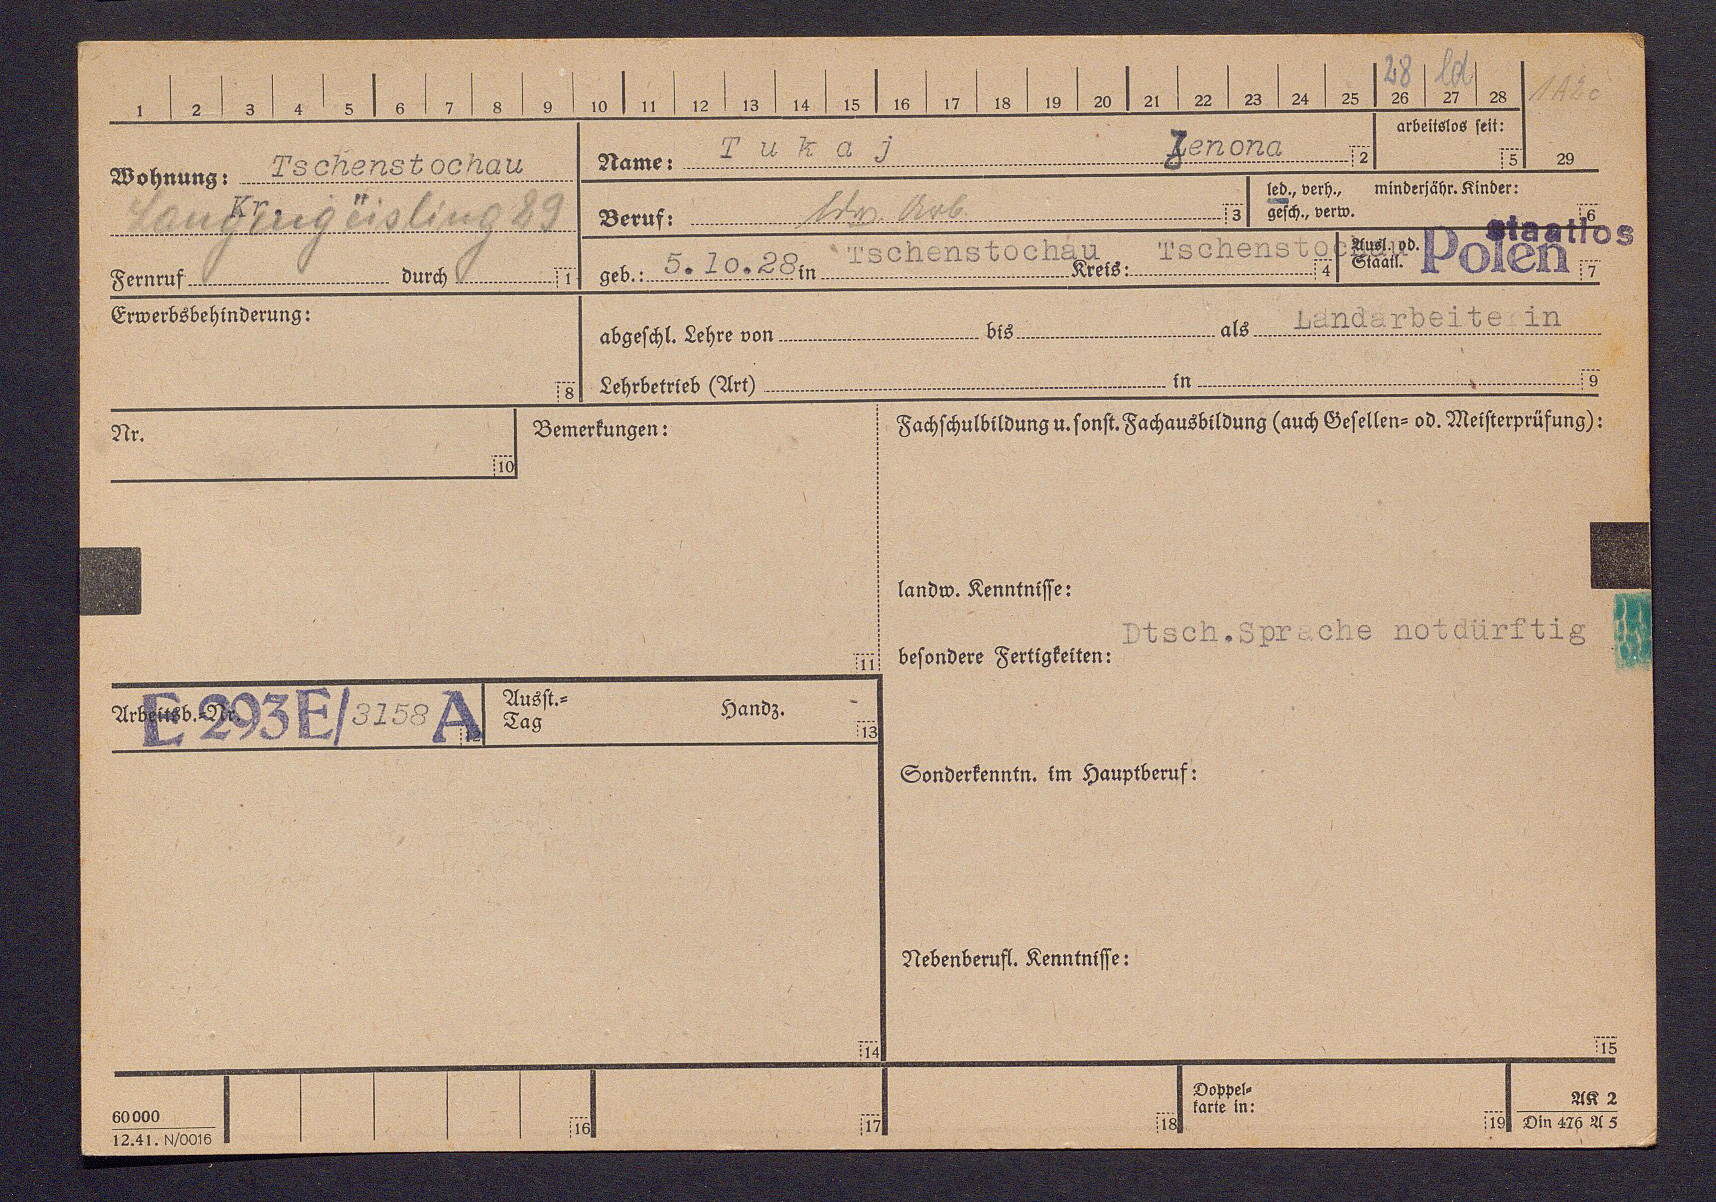 28 ld
1 2 3 4 5 6 7 8 9 10 11 12 13 14 15 16 17 18 19 20 21 22 23 24 25 26 27 28
arbeitslos seit:
5
29
Wohnung: Tschenstochau
Kr.
Langengeisling 89
Fernruf durch 1
Name: T u k a j Zenona 2
Beruf: ldw. Arb. 3
led., verh., minderjähr. Kinder:
gesch., verw. 6
geb.: 5.10.28 in Tschenstochau Kreis: Tschenstochau 4
Ausl. od. Staatl. Polen staatlos 7
Erwerbsbehinderung:
8
abgeschl. Lehre von bis als Landarbeiterin
Lehrbetrieb (Art) in 9
Nr.
10
Bemerkungen:
11
Fachschulbildung u. sonst. Fachausbildung (auch Gesellen- od. Meisterprüfung):
landw. Kenntnisse:
Dtsch.Sprache notdürftig
besondere Fertigkeiten:
Arbeitsb.-Nr. E 293E/3158 A 12
Ausst.-Tag Handz. 13
Sonderkenntn. im Hauptberuf:
Nebenberufl. Kenntnisse:
14
15
60000
12.41. N/0016
16
17
18
Doppel-
karte in:
19
AK 2
Din 476 A 5